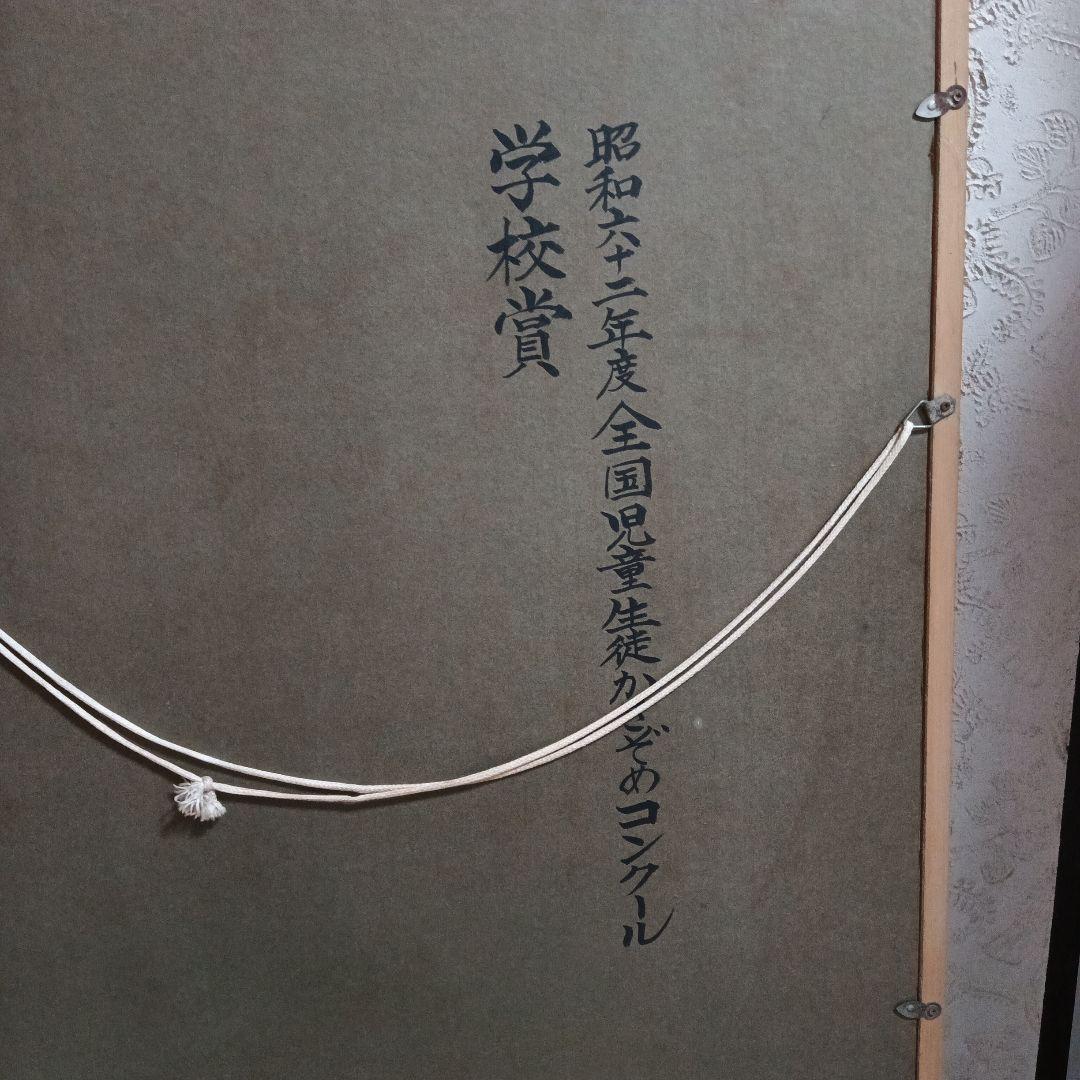 昭和六十二年度全国児童生徒かきぞめコンクール
学校賞